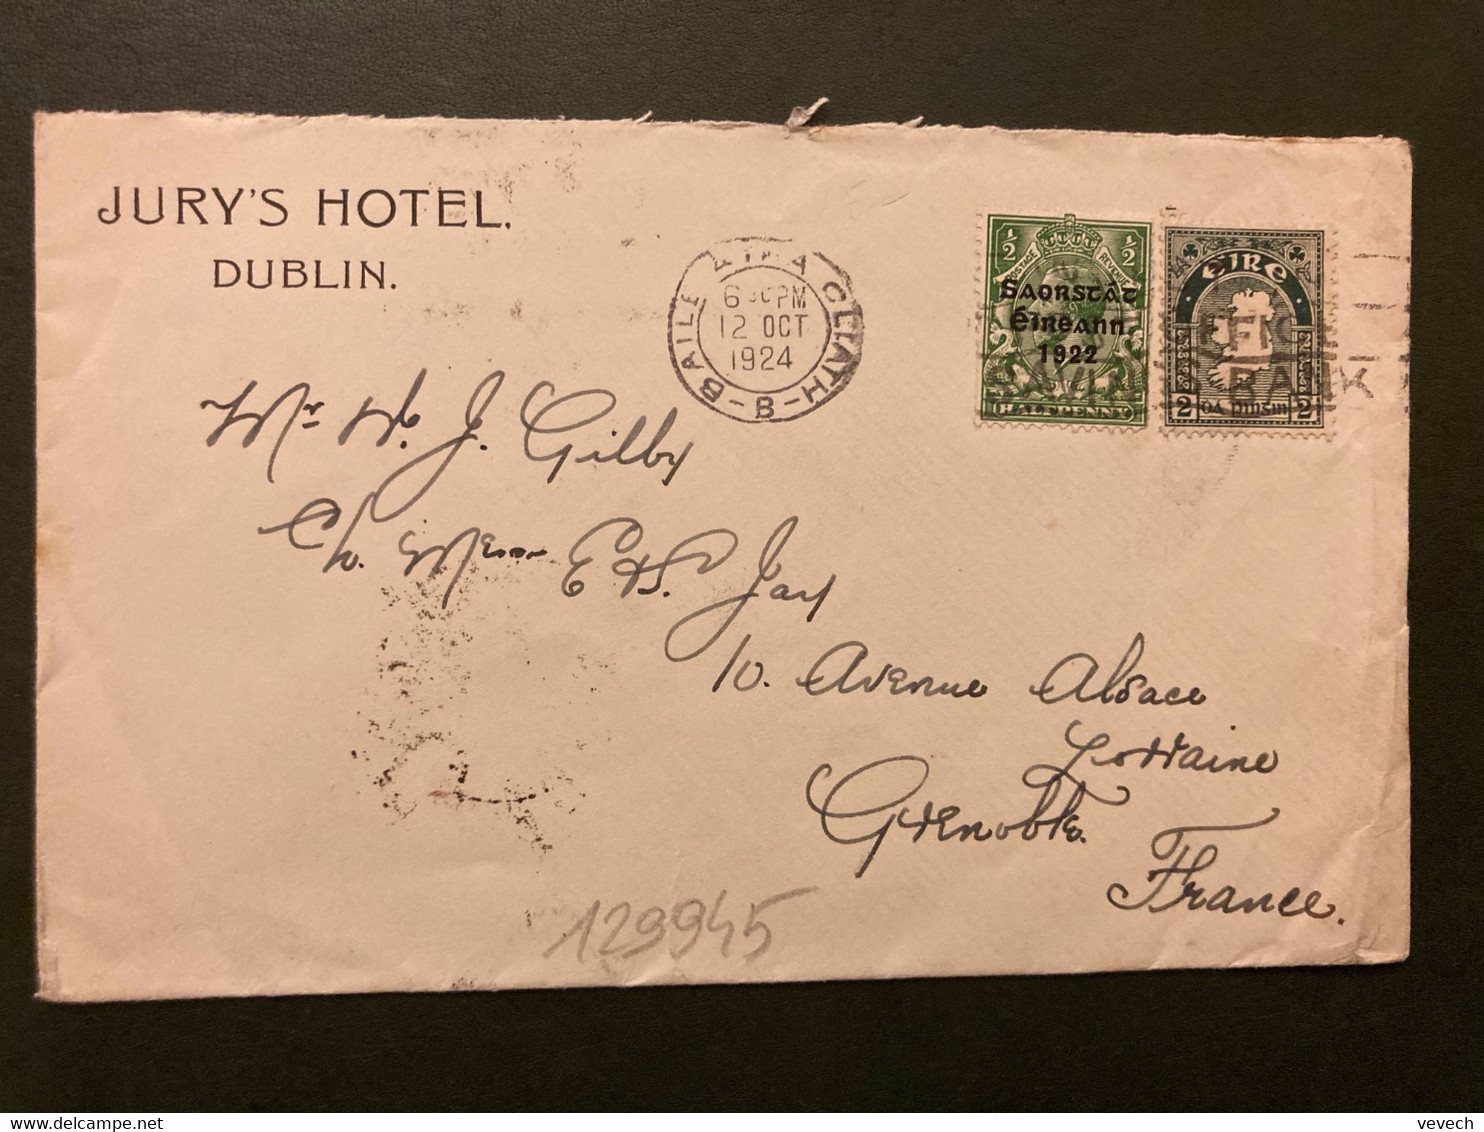 JURY'S HOTEL.
DUBLIN.
BAILE ÁTHA CLIATH -B-
6 30 PM
12 OCT
1924
½ ½
POSTAGE REVENUE
Saorstát
Éireann
1922
HALFPENNY
éire
2 dá pinginn 2
OFFICE
SAVINGS BANK
Mr W. J. Gilby
C/o. Messrs E & S. Jay
10. Avenue Alsace
Lorraine
Grenoble.
France.
129945
vevech